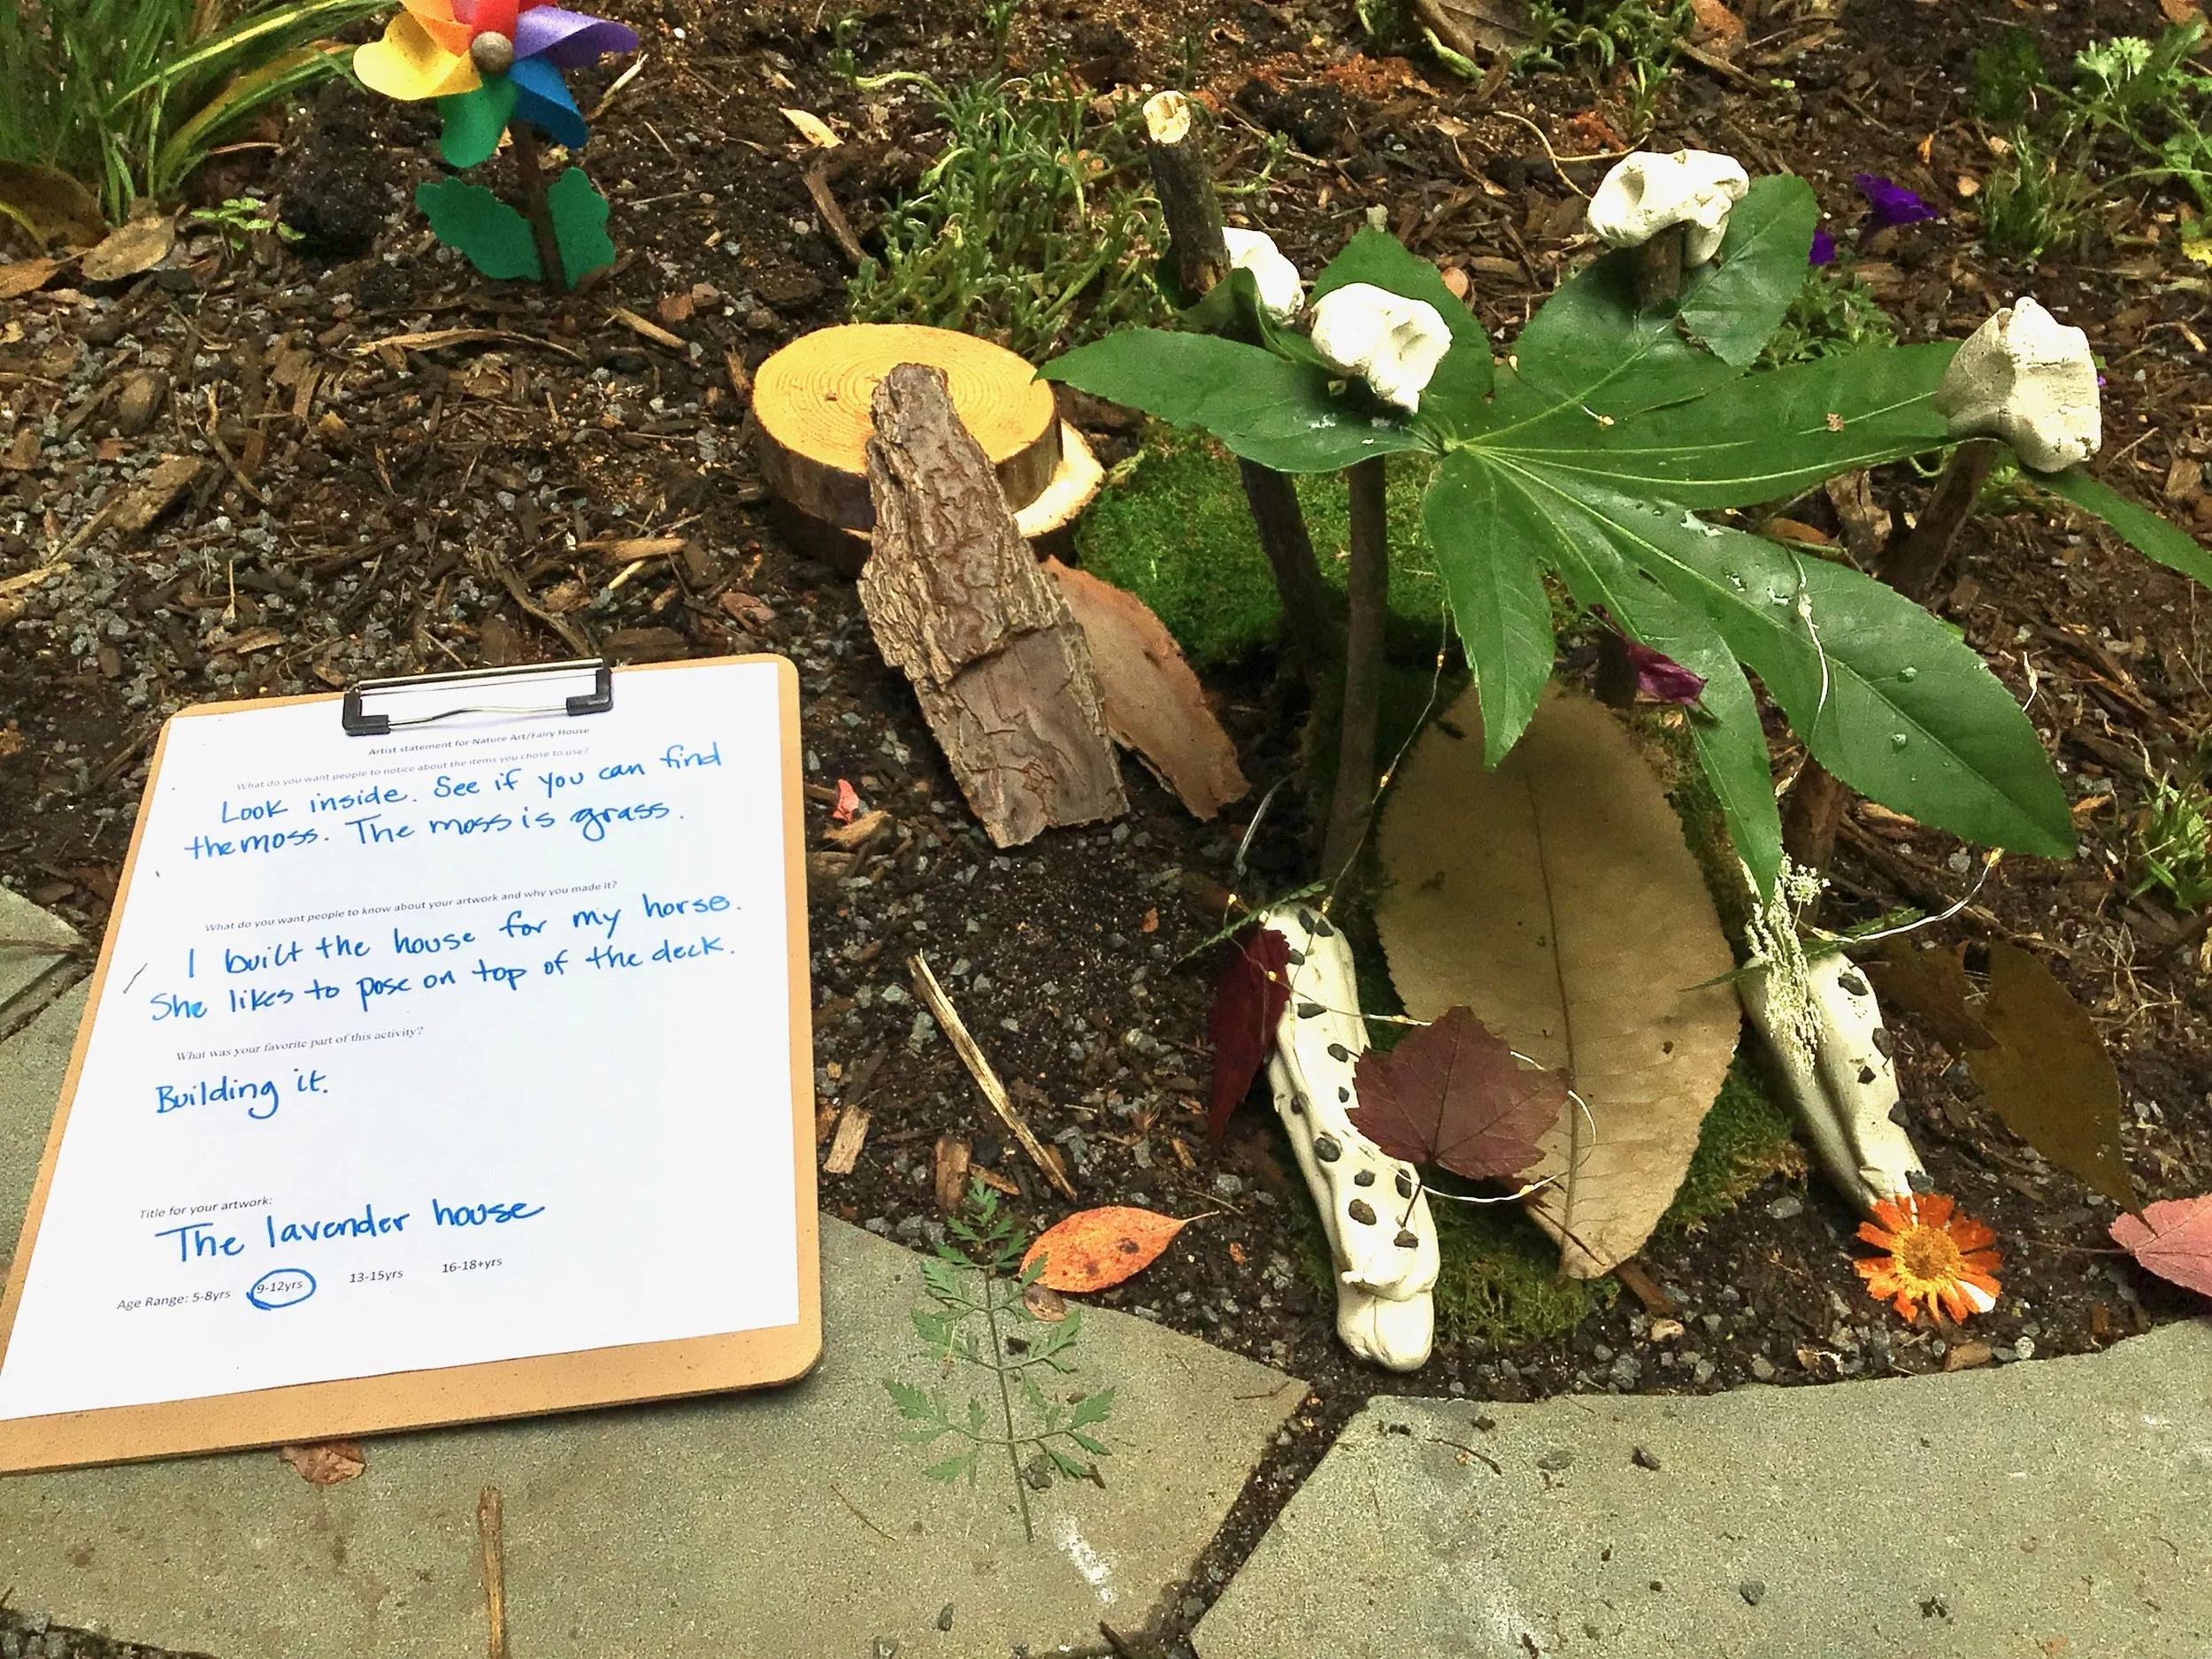 Artist statement for Nature Art/Fairy House
What do you want people to notice about the items you chose to use?
Look inside. See if you can find
the moss. The moss is grass.
What do you want people to know about your artwork and why you made it?
I built the house for my horse.
She likes to pose on top of the deck.
What was your favorite part of this activity?
Building it.
Title for your artwork:
The lavender house
Age Range: 5-8yrs 9-12yrs 13-15yrs 16-18+yrs